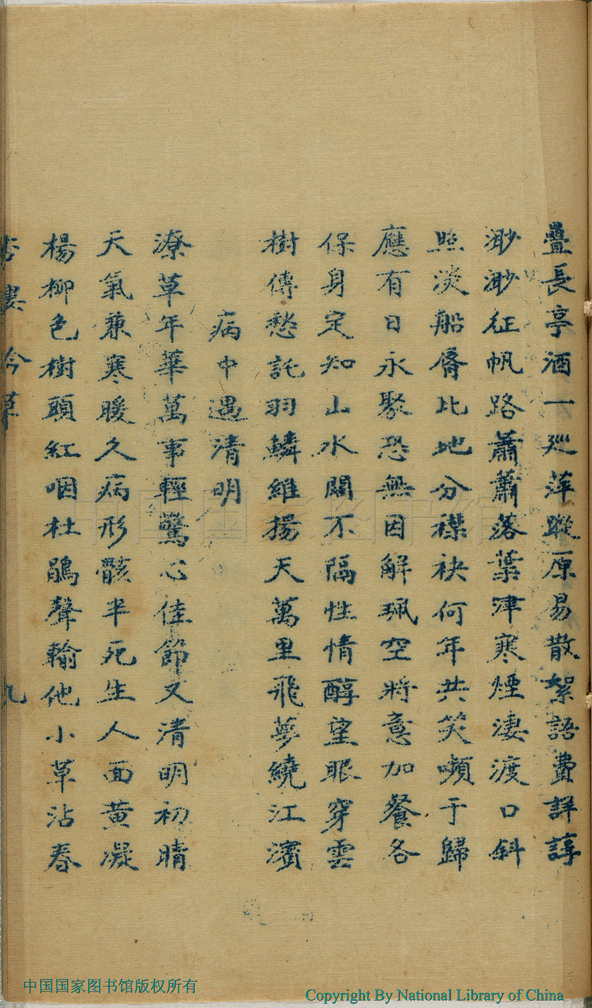 疊長亭酒一巡萍蹤原易散絮語費詳諄
渺渺征帆路蕭蕭落葉津寒煙淒渡口斜
照淡船脣比地分襟袂何年共笑嚬于歸
應有日永聚恐無因解珮空將意加餐各
保身定知山水闊不隔性情醇望眼穿雲
樹傳愁託羽鱗維揚天萬里飛夢繞江濱
病中遇清明
潦草年華萬事輕驚心佳節又清明初晴
天氣兼寒暖久病形骸半死生人面黃凝
楊柳色樹頭紅咽杜鵑聲輸他小草沾春
樓吟草 九
中国国家图书馆
中国国家图书馆版权所有
Copyright By National Library of China